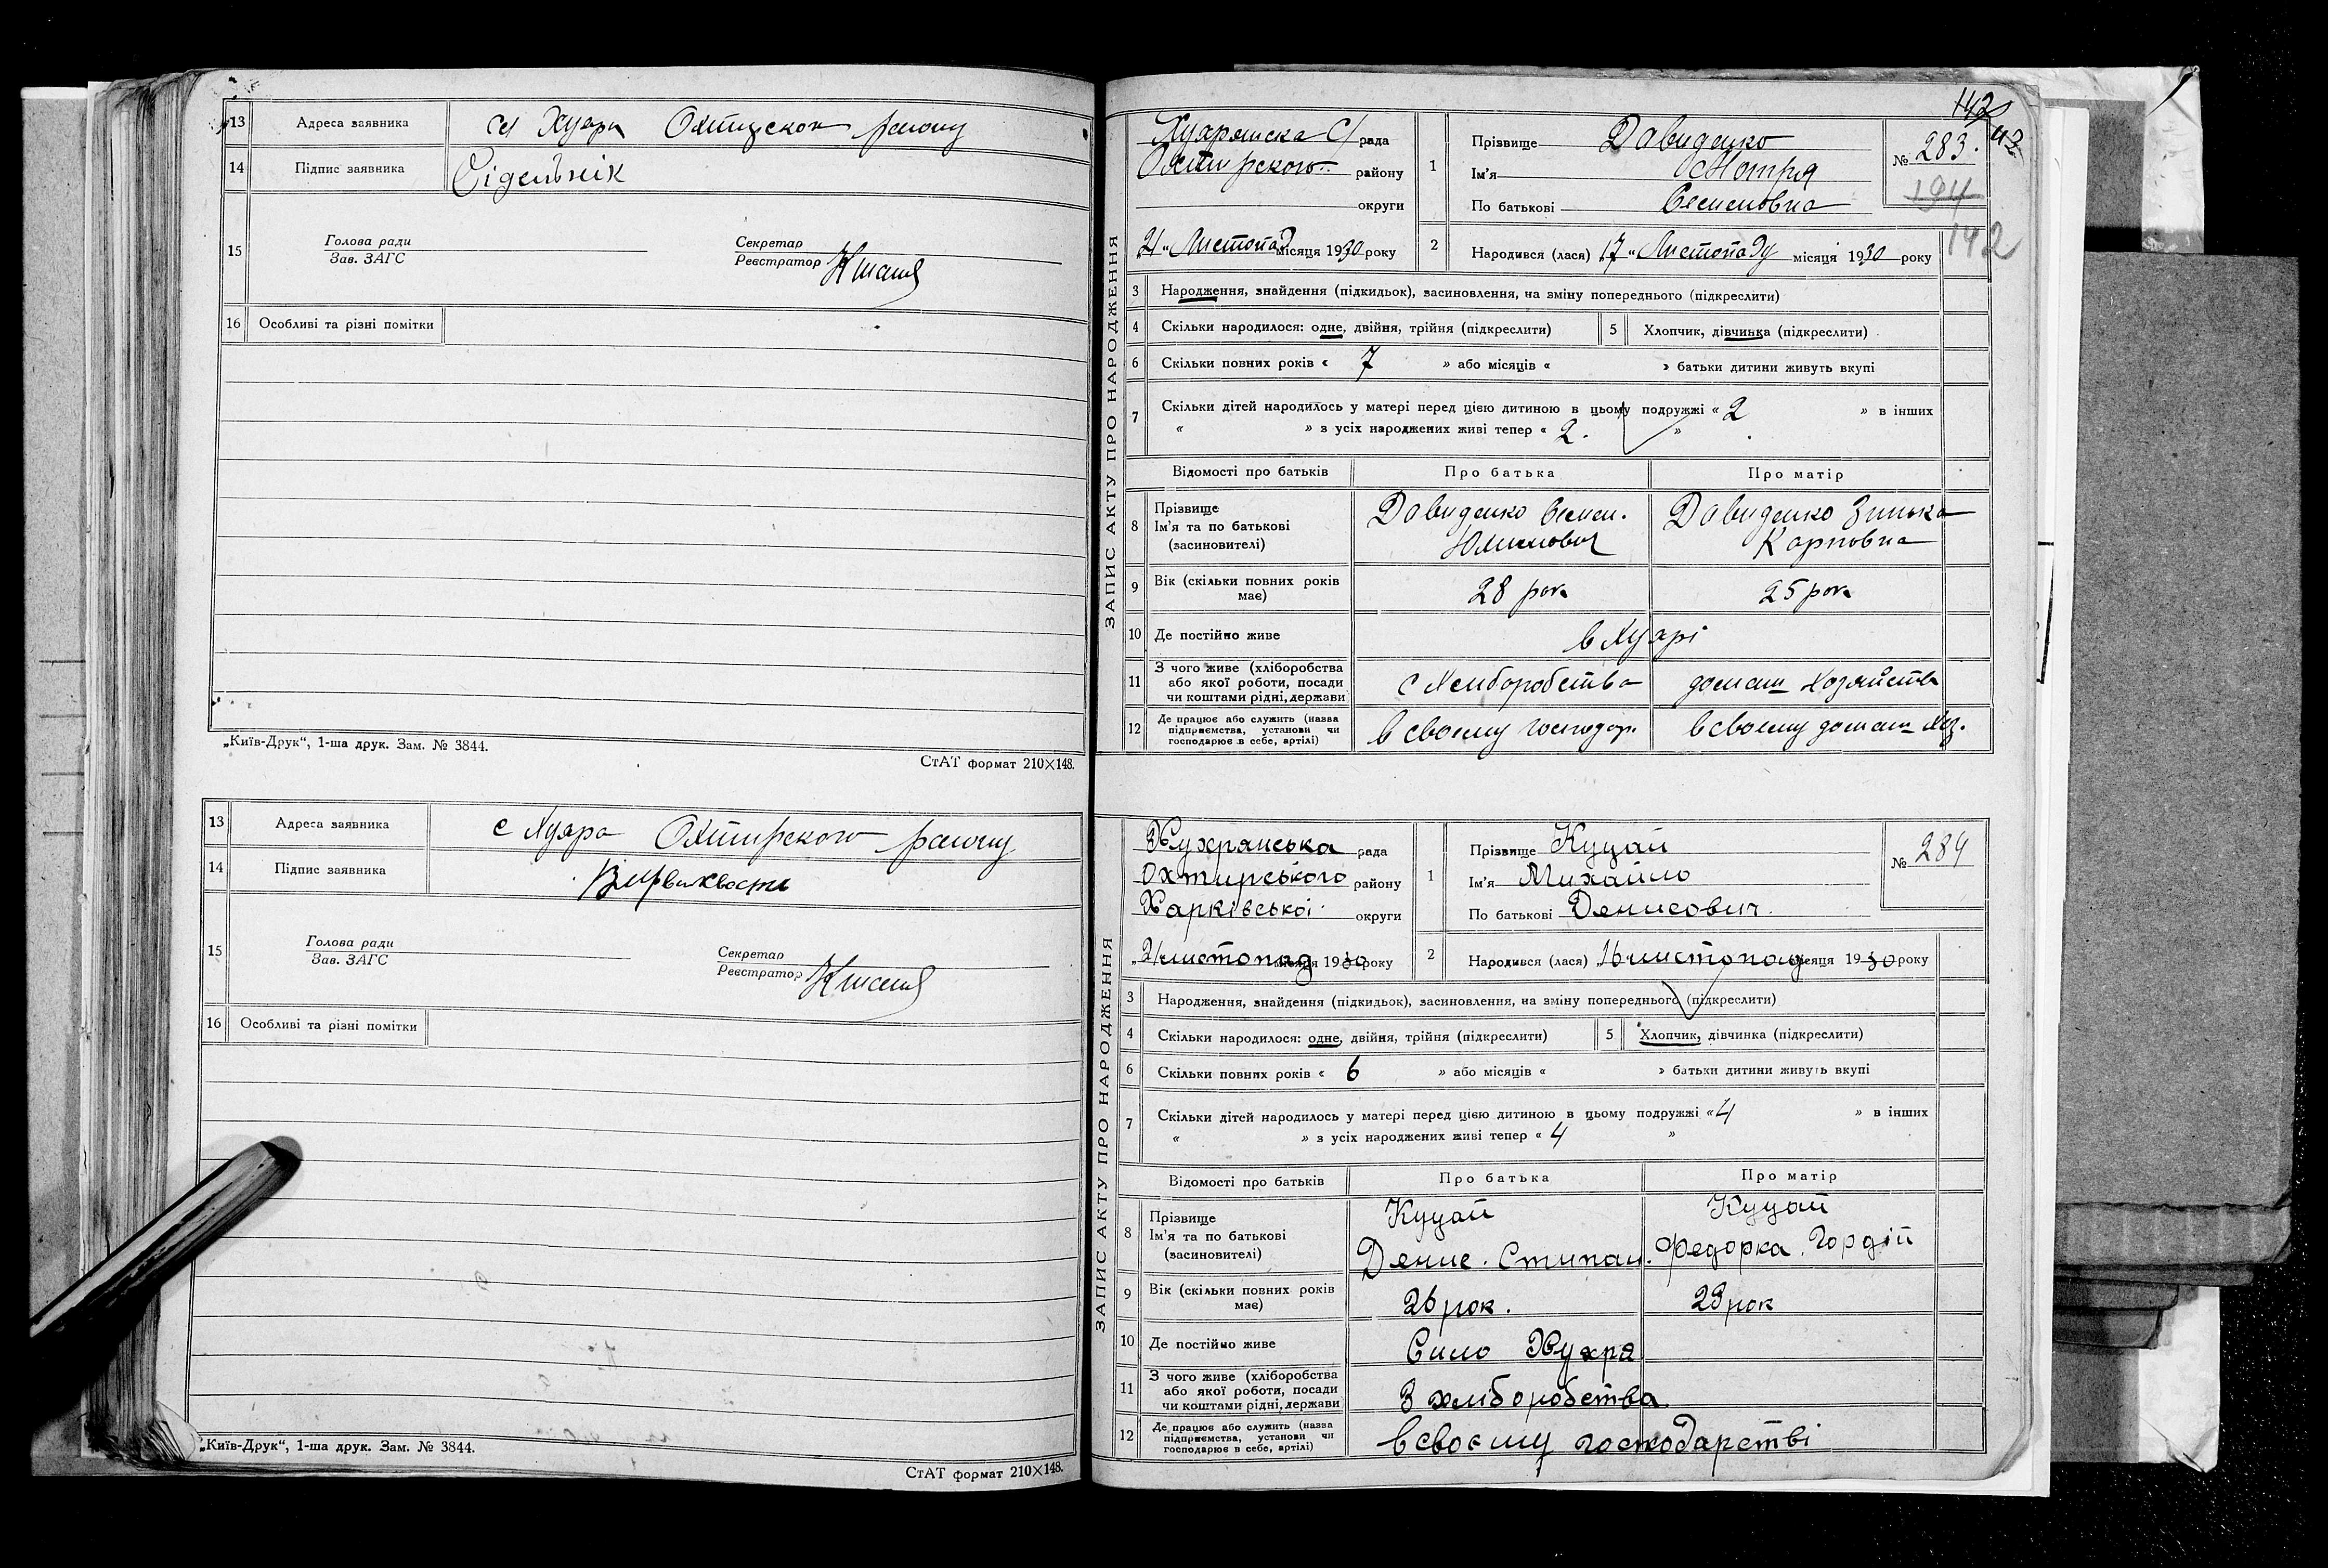 13 Адреса заявника с/ Хухра Охтирськ району
14 Підпис заявника Сідельнік
15 Голова ради
Зав. ЗАГС
Секретар
Реєстратор
16 Особливі та різні помітки
„Київ-Друк“, 1-ша друк. Зам. № 3844.
СтАТ формат 210×148.
13 Адреса заявника с Хухра Охтирского району
14 Підпис заявника
15 Голова ради
Зав. ЗАГС
Секретар
Реєстратор
16 Особливі та різні помітки
„Київ-Друк“, 1-ша друк. Зам. № 3844.
СтАТ формат 210×148.
142
ЗАПИС АКТУ ПРО НАРОДЖЕННЯ
Хухрянска С/ рада
Охтирского району
округи
„21“ Листопад місяця 1930 року
1 Прізвище Давиденко
Ім'я Мотря
По батькові Семеновна
№ 283.
194
142
2 Народився (лася) 17 „ Листопаду місяця 1930 року
3 Народження, знайдення (підкидьок), засиновлення, на зміну попереднього (підкреслити)
4 Скільки народилося: одне, двійня, трійня (підкреслити) 5 Хлопчик, дівчинка (підкреслити)
6 Скільки повних років « 7 » або місяців « » батьки дитини живуть вкупі
7 Скільки дітей народилось у матері перед цією дитиною в цьому подружжі « 2 » в інших
« » з усіх народжених живі тепер « 2. »
Відомості про батьків Про батька Про матір
8 Прізвище
Ім'я та по батькові
(засиновителі)
Давиденко Семен.
Давиденко Зинька
Карповна
9 Вік (скільки повних років має) 28 рок 25 рок
10 Де постійно живе в Хухрі
11 З чого живе (хліборобства
або якої роботи, посади
чи коштами рідні, держави
с Хлиборобства домаш хозяйства
12 Де працює або служить (назва
підприємства, установи чи
господарює в себе, артілі)
в своєму господар. в своєму домаш хоз.
ЗАПИС АКТУ ПРО НАРОДЖЕННЯ
Хухрянська рада
Охтирського району
Харківської округи
„21 листопад місяця 1930 року
1 Прізвище Куцай
Ім'я Михайло
По батькові Денисович.
№ 284
2 Народився (лася) „16 листопад місяця 1930 року
3 Народження, знайдення (підкидьок), засиновлення, на зміну попереднього (підкреслити)
4 Скільки народилося: одне, двійня, трійня (підкреслити) 5 Хлопчик, дівчинка (підкреслити)
6 Скільки повних років « 6 » або місяців « » батьки дитини живуть вкупі
7 Скільки дітей народилось у матері перед цією дитиною в цьому подружжі « 4 » в інших
« » з усіх народжених живі тепер « 4 »
Відомості про батьків Про батька Про матір
8 Прізвище
Ім'я та по батькові
(засиновителі)
Куцай Куцай
Денис. Стипан. Федорка. Гордій
9 Вік (скільки повних років має) 26 рок. 29 рок
10 Де постійно живе Сило Хухра
11 З чого живе (хліборобства
або якої роботи, посади
чи коштами рідні, держави
З хліборобства.
12 Де працює або служить (назва
підприємства, установи чи
господарює в себе, артілі)
в своєму господарстві